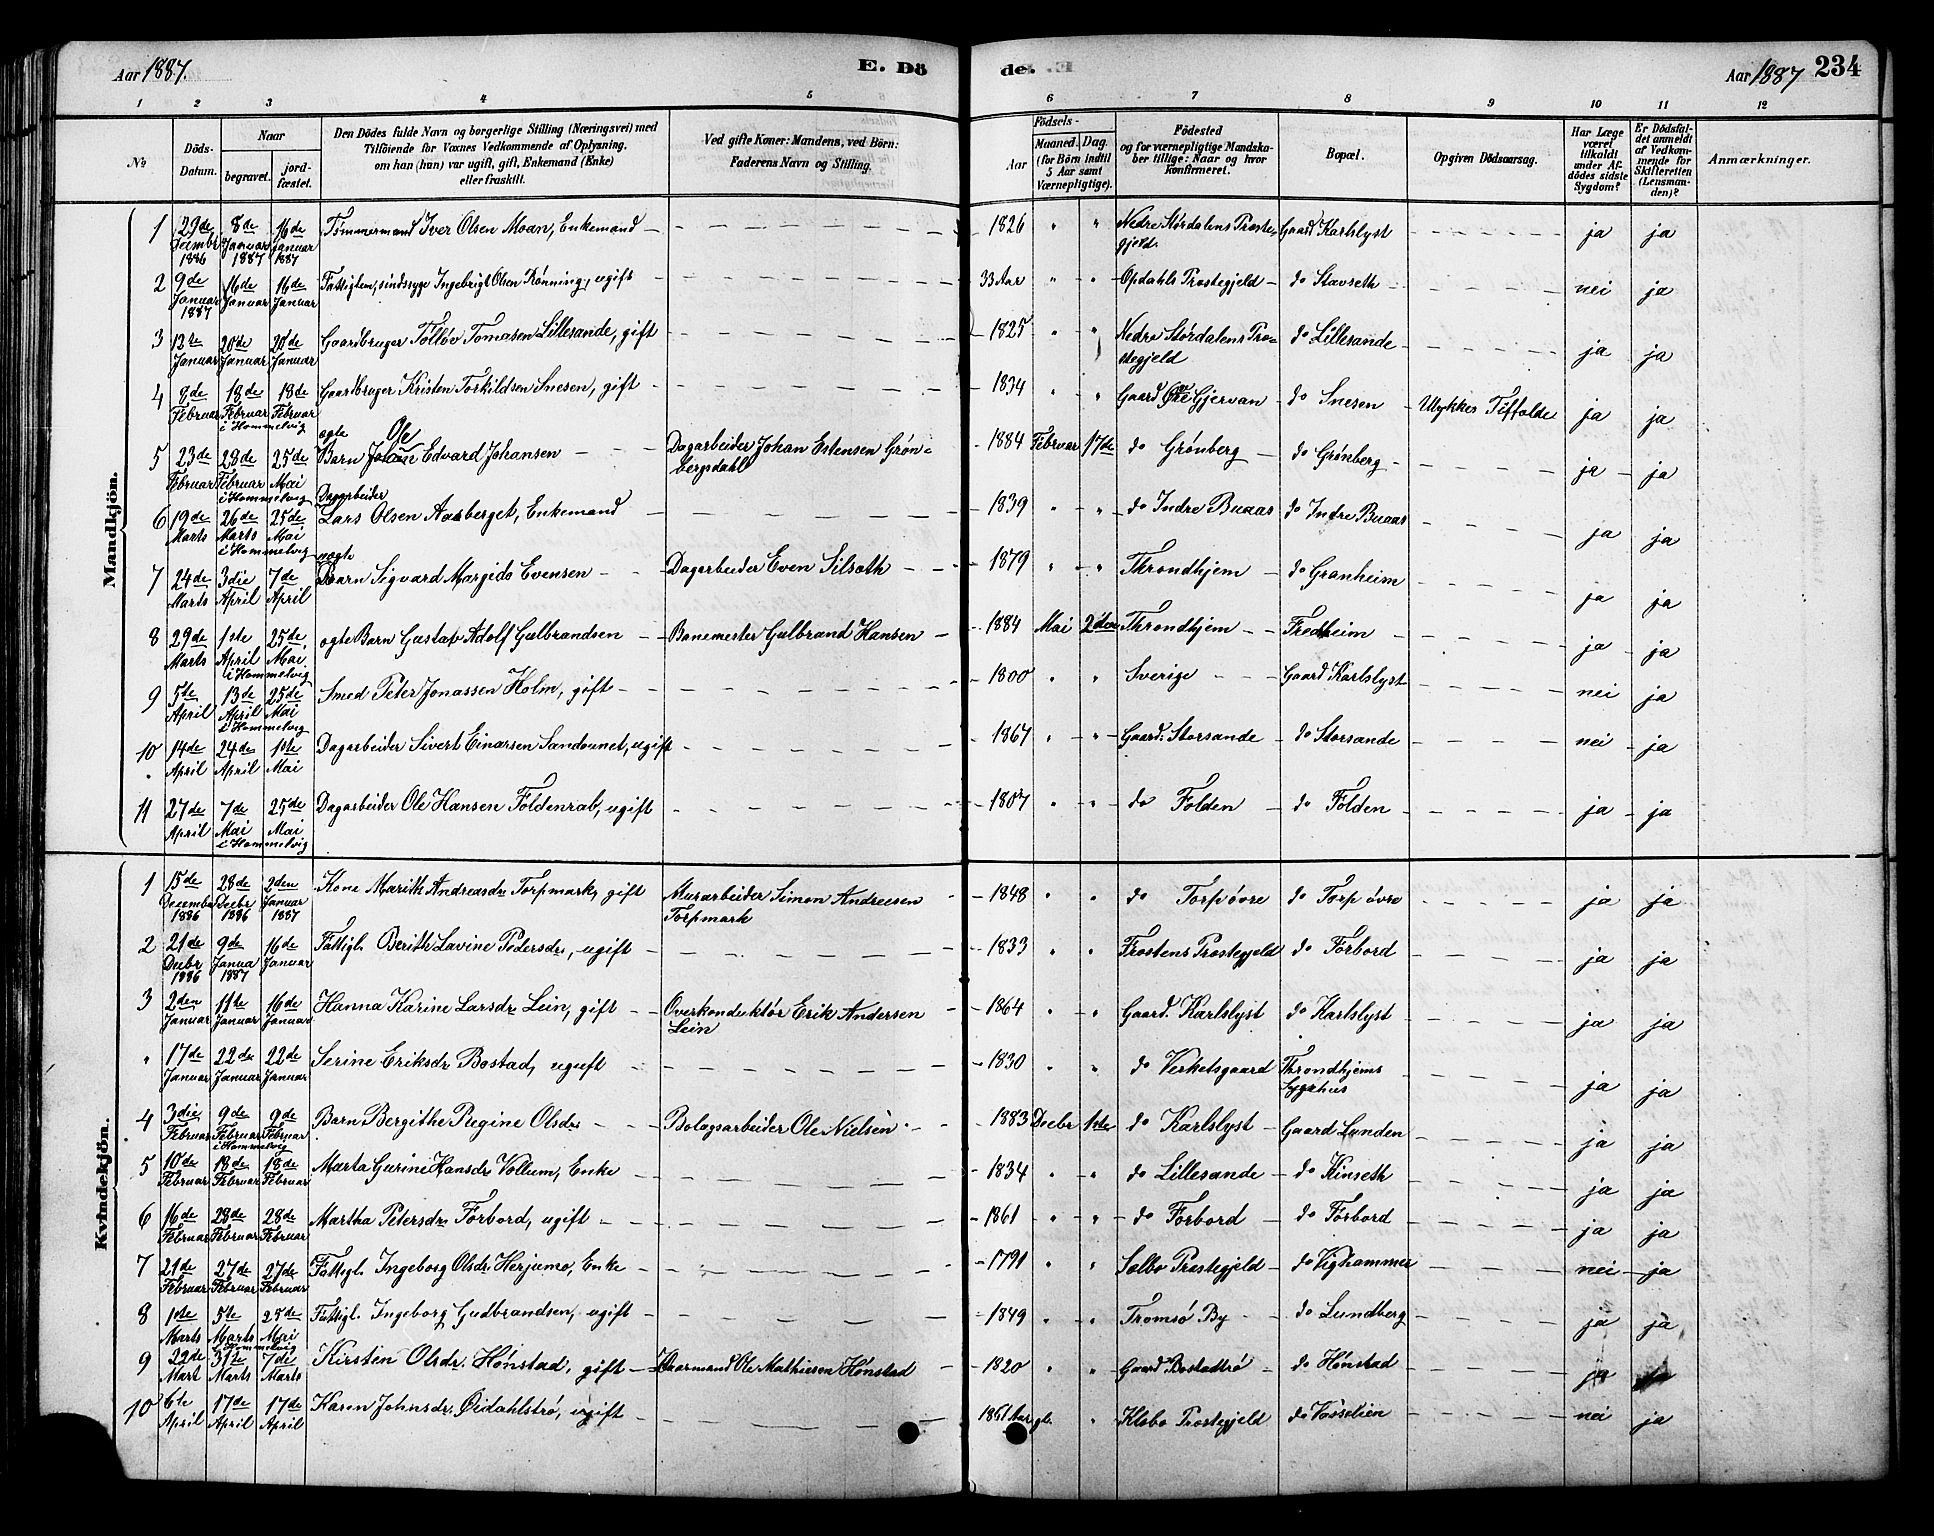 Aar 1887. E. Dö de. Aar 1887 234
1 2 3 4 5 6 7 8 9 10 11 12
No
Döds-Datum.
Naar
begravet.
jord-fæstet.
Den Dödes fulde Navn og borgerlige Stilling (Næringsvei) med
Tilföiende for Voxnes Vedkommende af Oplysning,
om han (hun) var ugift, gift, Enkemand (Enke)
eller fraskilt.
Ved gifte Koner: Mandens, ved Börn:
Faderens Navn og Stilling.
Födsels-
Aar
Maaned. Dag.
(for Börn indtil
5 Aar samt
Værnepligtige).
Födested
og for værnepligtige Mandska-
ber tillige: Naar og hvor
konfirmeret.
Bopæl.
Opgiven Dödsaarsag.
Har Læge
været
tilkaldt
under Af-
dödes sidste
Sygdom?
Er Dödsfal-
det anmeldt
af Vedkom-
mende for
Skifteretten
(Lensman-
den)?
Anmærkninger.
Mandkjön.
1 29de Decmbr 1886 8de Januar 1887 16de Januar 1887 Tømmermand Iver Olsen Moan, Enkemand 1826 " " Nedre Størdalens Præste-gjeld. Gaard Karlslyst ja ja
2 9de Januar 1887 16de Januar 16de Januar Fattiglem, sindssyge Ingebrigt Olsen Rønning, ugift 33 Aar " " Opdahls Præstegjeld do Stavseth nei ja
3 13te Januar 20de Januar 20de Januar Gaardbruger Tolløv Tomasen Lillesande, gift 1825 " " Nedre Størdalens Præ-stegjeld do Lillesande ja ja
4 8de Februar 18de Februar i Hommelvig 18de Februar Gaardbruger Kristen Torkildsen Snesen, gift 1834 " " Gaard Øvre Gjervan do Snesen Ulykkes Tilfælde ja ja
5 23de Februar 28de Februar i Hommelvig 25de Mai ægte Barn Ole Edvard Johansen Dagarbeider Johan Estensen Grøn-bergsdahl 1884 Februar 17de do Grønberg do Grønberg ja ja
6 19de Marts 26de Marts i Hommelvig 25de Mai Dagarbeider Lars Olsen Aasberget, Enkemand 1839 " " do Indre Buaas do Indre Buaas ja ja
7 24de Marts 3die April 7de April uægte Barn Sigvard Margido Evensen Dagarbeider Even Silseth 1879 " " Throndhjem do Granheim ja ja
8 29de Marts 1ste April i Hommelvig 25de Mai ægte Barn Gustav Adolf Gulbrandsen Banemester Gulbrand Hansen 1884 Mai 2den Throndhjem Fredheim ja ja
9 5te April 13de April i Hommelvig 25de Mai Smed Peter Jonassen Holm, gift 1800 " " Sverige Gaard Karlslyst nei ja
10 14de April 24de April 1ste Mai Dagarbeider Sivert Einarsen Sandmnet, ugift 1867 " " Gaard. Storsande do Storsande nei ja
11 27de April 7de Mai i Hommelvig 25de Mai Dagarbeider Ole Hansen Foldenrab, ugift 1807 " " do Folden do Folden ja ja
Kvindekjön.
1 15de Decembr 1886 28de Decbr 1886 2den Januar 1887 Kone Marith Andreasdr Torpmark, gift Murarbeider Simon Andreesen Torpmark 1848 " " do Torp øvre do Torp øvre ja ja
2 21de Decbr 1886 9de Janua 1887 16de Januar Fattigl. Berith Lavine Pedersdr, ugift 1833 " " Frostens Præstegjeld do Forbord ja ja
3 2den Januar 11te Januar 16de Januar Hanna Karine Larsdr Lein, gift Overkonduktør Erik Andersen Lein 1864 " " Gaard. Karlslyst do Karlslyst ja ja
" 17de Januar 22de Januar 22de Januar Serine Eriksdr Bostad, ugift 1830 " " do Verketsgaard Throndhjems Sygehus ja ja
4 3die Februar 9de Februar i Hommelvig 9de Februar Barn Bergithe Regine Olsdr Bolagsarbeider Ole Nielsen 1883 Decbr 1ste do Karlslyst Gaard Lunden ja ja
5 10de Februar 18de Februar 18de Februar Marta Gurine Hansdr Vollum, Enke 1834 " " do Lillesande do Kinseth ja ja
6 16de Februar 28de Februar 28de Februar Martha Petersdr Forbord, ugift 1861 " " do Forbord do Forbord ja ja
7 21de Februar 27de Februar 27de Februar Fattigl. Ingeborg Olsdr Herjumo, Enke 1791 " " Selbo Præstegjeld do Vighammer nei ja
8 1ste Marts 5te Marts i Hommelvig 25de Mai Fattigl. Ingeborg Gudbrandsen, ugift 1849 " " Tromsø By do Lundberg ja ja
9 22de Mart 31te Marts 7de Marts Kirsten Olsdr Hønstad, gift Kaarmand Ole Mathiesen Hønstad 1820 " " Gaard Bostadtrø do Hønstad ja ja
10 6te April 17de April 17de April Karen Johnsdr Øidahlstrø, ugift 1861 Aar gl. " Klæbo Præstegjeld do Vasselien nei ja